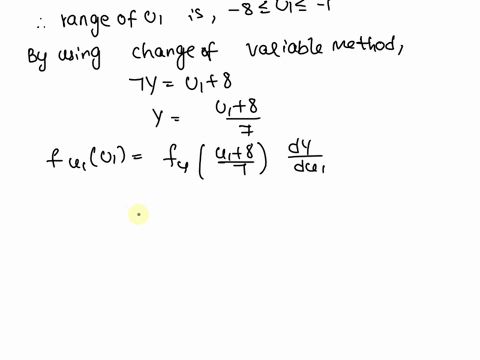 ∴ range of U₁ is, -8 ≤ U₁ ≤ -1
By using change of variable method,
7Y = U₁ + 8
Y = U₁+8 / 7
f u₁ (U₁) = f y ( u₁+8 / 7 ) dY / du₁